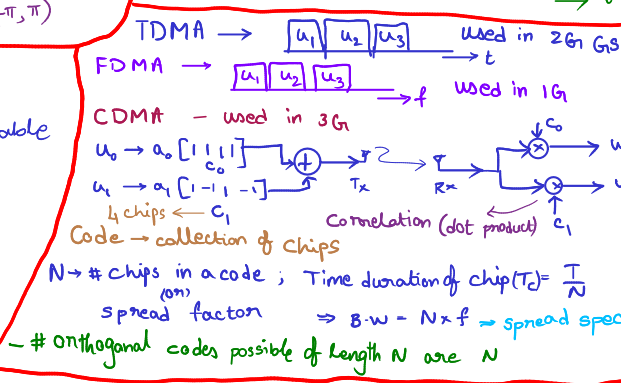 -π, π)
TDMA → u₁ u₂ u₃ → t used in 2G GS
FDMA → u₁ u₂ u₃ → f used in 1G
able
CDMA - used in 3G
u₀ → a₀ [1 1 1 1] C₀ + Tx Rx × C₀ u
u₁ → a₁ [1 -1 1 -1] × u
4 chips ← C₁ Correlation (dot product) C₁
Code → collection of chips
N → # chips in a code ; Time duration of chip (Tc) = T/N
(or)
spread factor ⇒ B.W = N × f → spread spec
- # orthoganal codes possible of length N are N